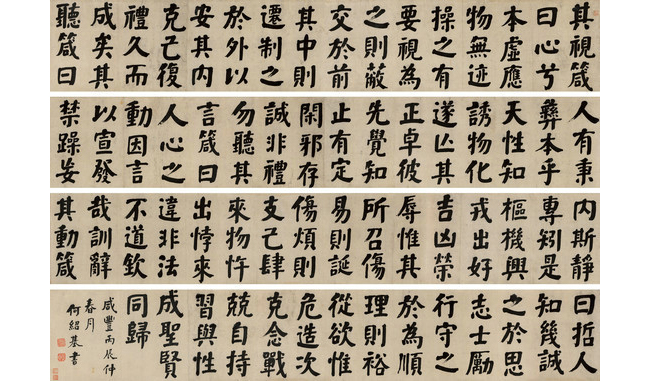 其視箴
曰心兮
本虛應
物無迹
操之有
要視為
之則蔽
交於前
其中則
遷制之
於外以
安其內
克己復
禮久而
咸矣其
聽箴曰
人有秉
彝本乎
天性知
誘物化
遂亡其
正卓彼
先覺知
止有定
閑邪存
誠非禮
勿聽其
言箴曰
人心之
動因言
以宣發
禁躁妄
內斯靜
專矧是
樞機興
戎出好
吉凶榮
辱惟其
所召傷
易則誕
傷煩則
支己肆
來物忤
出悖來
違非法
不道欽
哉訓辭
其動箴
曰哲人
知幾誠
之於思
志士勵
行守之
於為順
理則裕
從欲惟
危造次
克念戰
兢自持
習與性
成聖賢
同歸
咸豐丙辰仲
春月
何紹基書